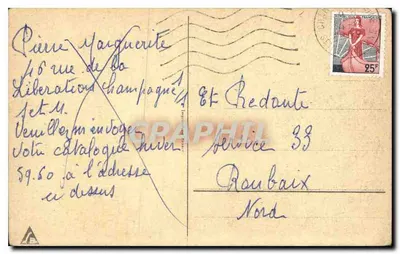 Pierre Marguerite
16 rue de la
Libération Champagne s/
Veuillez m'envoyer
Votre catalogue hiver
59.60 à l'adresse
ci dessus
Ets Redoute
Service 33
Roubaix
Nord
25F
PHIL